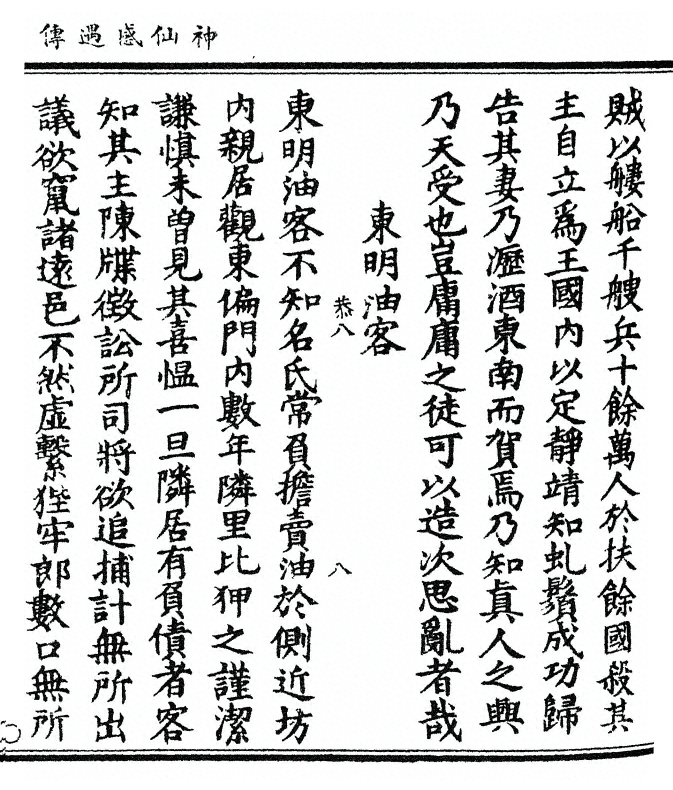 神仙感遇傳
賊以艛船千艘兵十餘萬人於扶餘國殺其
主自立爲王國內以定靜靖知虬鬚成功歸
告其妻乃瀝酒東南而賀焉乃知真人之興
乃天受也豈庸庸之徒可以造次思亂者哉
東明油客
恭八
八
東明油客不知名氏常負擔賣油於側近坊
內親居觀東偏門內數年隣里比狎之謹潔
謙慎未曾見其喜愠一旦隣居有負債者客
知其主陳牒徵訟所司將欲追捕計無所出
議欲竄諸遠邑不然虛繫狴牢郎數口無所